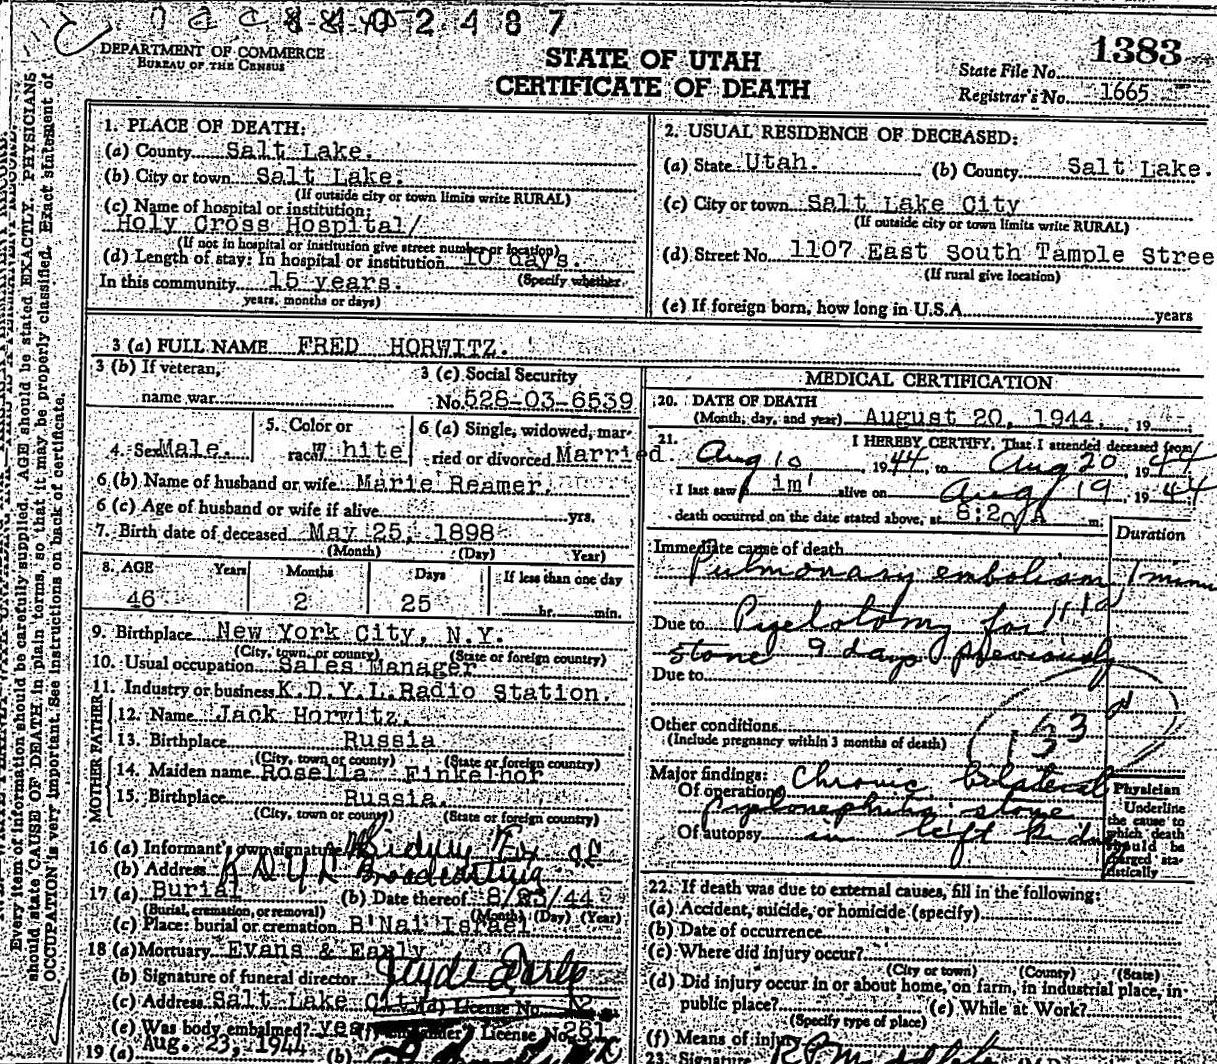 02487
DEPARTMENT OF COMMERCE
BUREAU OF THE CENSUS
STATE OF UTAH
CERTIFICATE OF DEATH
1383
State File No.
Registrar's No. 1665
Every item of information should be carefully supplied. AGE should be stated EXACTLY. PHYSICIANS
should state CAUSE OF DEATH in plain terms, so that it may be properly classified. Exact statement of
OCCUPATION is very important. See instructions on back of certificate.
1. PLACE OF DEATH:
(a) County Salt Lake.
(b) City or town Salt Lake.
(If outside city or town limits write RURAL)
(c) Name of hospital or institution:
Holy Cross Hospital/
(If not in hospital or institution give street number or location)
(d) Length of stay: In hospital or institution 10 days.
(Specify whether
In this community 15 years.
years, months or days)
2. USUAL RESIDENCE OF DECEASED:
(a) State Utah. (b) County Salt Lake.
(c) City or town Salt Lake City
(If outside city or town limits write RURAL)
(d) Street No. 1107 East South Tample Stree
(If rural give location)
(e) If foreign born, how long in U.S.A. years
3 (a) FULL NAME FRED HORWITZ.
3 (b) If veteran,
name war
3 (c) Social Security
No. 528-03-6539
4. Sex Male.
5. Color or
race White
6 (a) Single, widowed, mar-
ried or divorced Married.
6 (b) Name of husband or wife Marie Reamer.
6 (c) Age of husband or wife if alive yrs.
7. Birth date of deceased May 25, 1898
(Month) (Day) Year)
8. AGE Years Months Days If less than one day
46 2 25 hr. min.
9. Birthplace New York City, N.Y.
(City, town, or county) (State or foreign country)
10. Usual occupation Sales Manager
11. Industry or business K.D.Y.L. Radio Station.
FATHER
12. Name Jack Horwitz.
13. Birthplace Russia
(City, town or county) (State or foreign country)
MOTHER
14. Maiden name Rosella Finkelhor
15. Birthplace Russia.
(City, town or county) (State or foreign country)
16 (a) Informant's own signature Sidney Fox
(b) Address KDYL Broadcasting
17 (a) Burial (b) Date thereof 8/23/44
(Burial, cremation, or removal) (Month) (Day) (Year)
(c) Place: burial or cremation B'Nai Israel
18 (a) Mortuary Evans & Early
(b) Signature of funeral director Clyde Early
(c) Address Salt Lake City (d) License No.
(e) Was body embalmed? yes License No. 261
19 (a) Aug. 23, 1944 (b)
MEDICAL CERTIFICATION
20. DATE OF DEATH
(Month, day, and year) August 20, 1944. , 19
21. I HEREBY CERTIFY, That I attended deceased from
Aug 10 , 1944, to Aug 20, 1944
I last saw him alive on Aug 19, 1944
death occurred on the date stated above, at 8:20 A m.
Duration
Immediate cause of death
Pulmonary embolism 1 min
Due to Pyelotomy for
stone 9 days previously
Due to
Other conditions
(Include pregnancy within 3 months of death)
133
Major findings:
Of operations Chronic bilateral
pyelonephritis stone
Of autopsy in left kidney
Physician
Underline
the cause to
which death
should be
charged sta-
tistically
22. If death was due to external causes, fill in the following:
(a) Accident, suicide, or homicide (specify)
(b) Date of occurrence
(c) Where did injury occur?
(City or town) (County) (State)
(d) Did injury occur in or about home, on farm, in industrial place, in
public place? (e) While at Work?
(Specify type of place)
(f) Means of injury
23. Signature